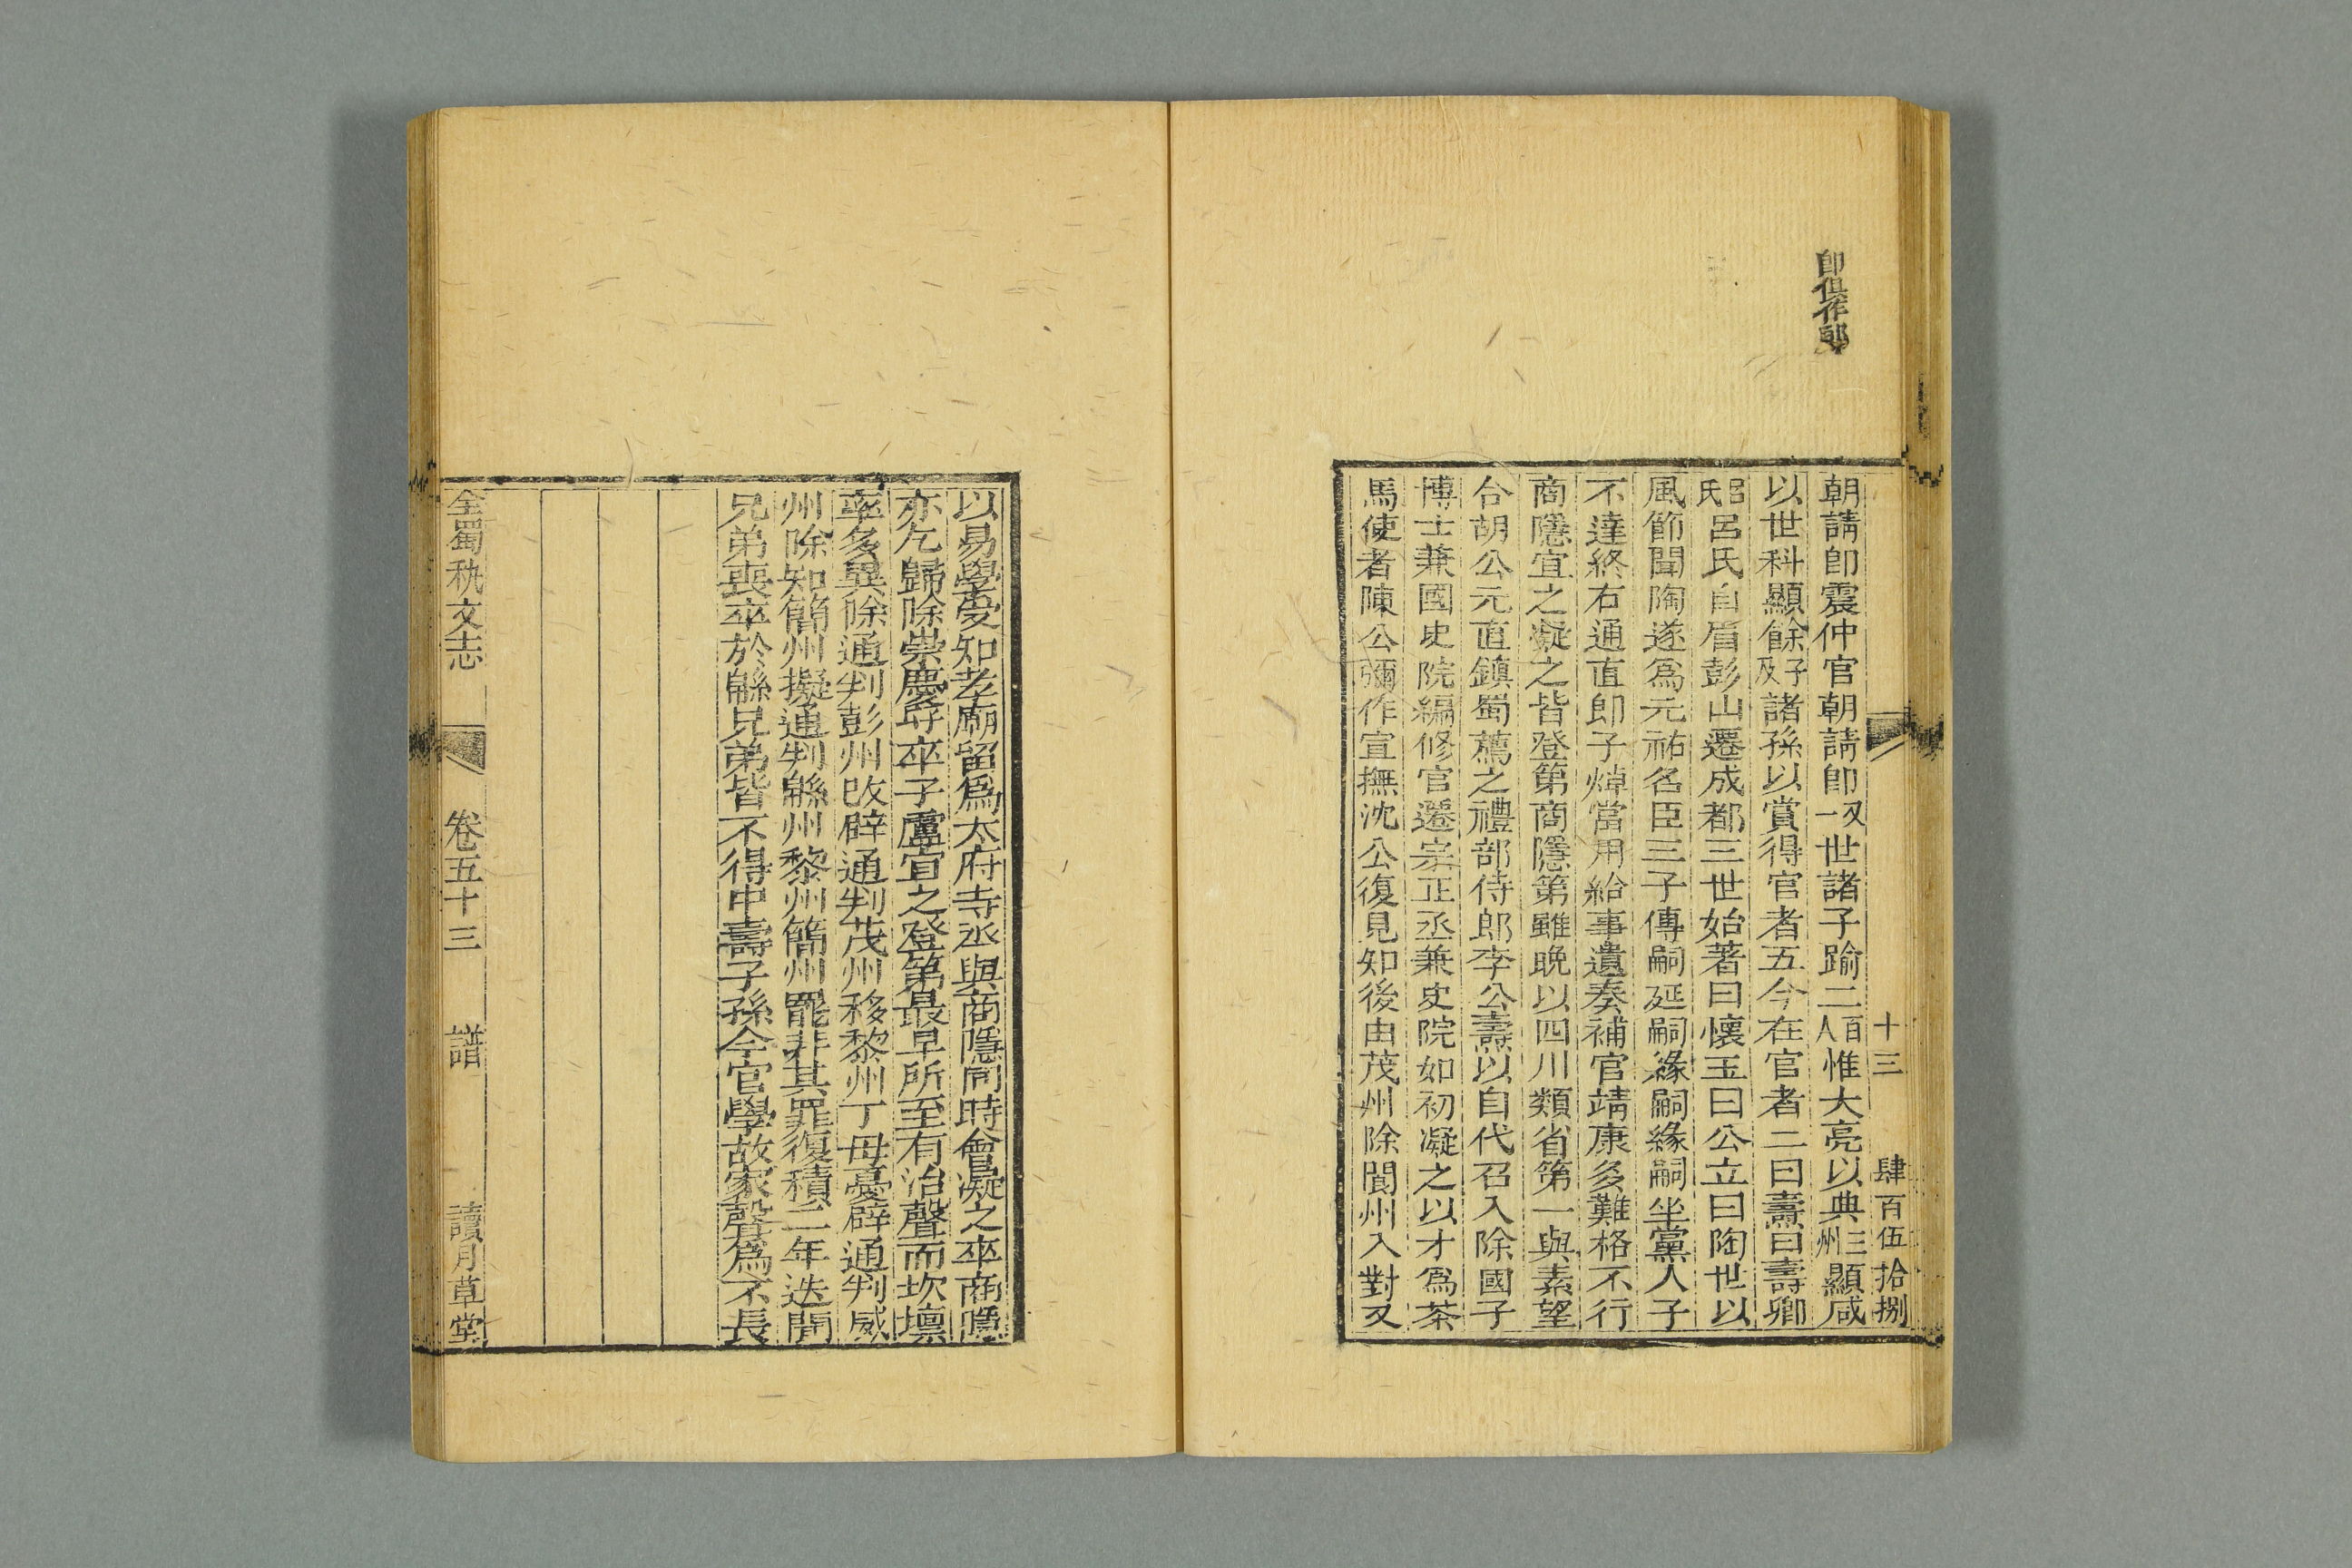 十三 肆百伍拾捌
卽俱作郎
朝請卽震仲官朝請卽又一世諸子踰二百人惟大亮以典三州顯咸
以世科顯餘子及諸孫以賞得官者五今在官者二曰壽曰壽卿
呂氏呂氏自眉彭山遷成都三世始著曰懷玉曰公立曰陶世以
風節聞陶遂爲元祐名臣三子傳嗣延嗣緣嗣緣嗣坐黨人子
不達終右通直卽子焯當用給事遺奏補官靖康多難格不行
商隱宜之凝之皆登第商隱第雖晚以四川類省第一與素望
合胡公元直鎮蜀薦之禮部侍郎李公壽以自代召入除國子
博士兼國史院編修官遷宗正丞兼史院如初凝之以才爲茶
馬使者陳公彌作宣撫沈公復見知後由茂州除閬州入對又
以易學受知孝廟留爲太府寺丞與商隱同時會凝之卒商隱
亦乞歸除崇慶守卒子盧宜之登第最早所至有治聲而坎壈
率多異除通判彭州改辟通判茂州移黎州丁母憂辟通判威
州除知簡州擬通判緜州黎州簡州罷非其罪復積二年迭聞
兄弟喪卒於緜兄弟皆不得中壽子孫今官學故家聲爲不長
全蜀秇文志 卷五十三 譜 讀月草堂